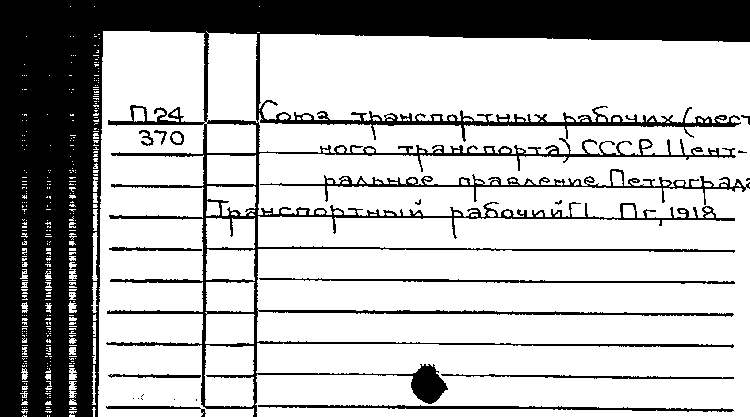 П24 Союз транспортных рабочих (мест
370 ного транспорта) СССР. Цент-
ральное правление. Петрограда
Транспортный рабочий. Пг, 1918